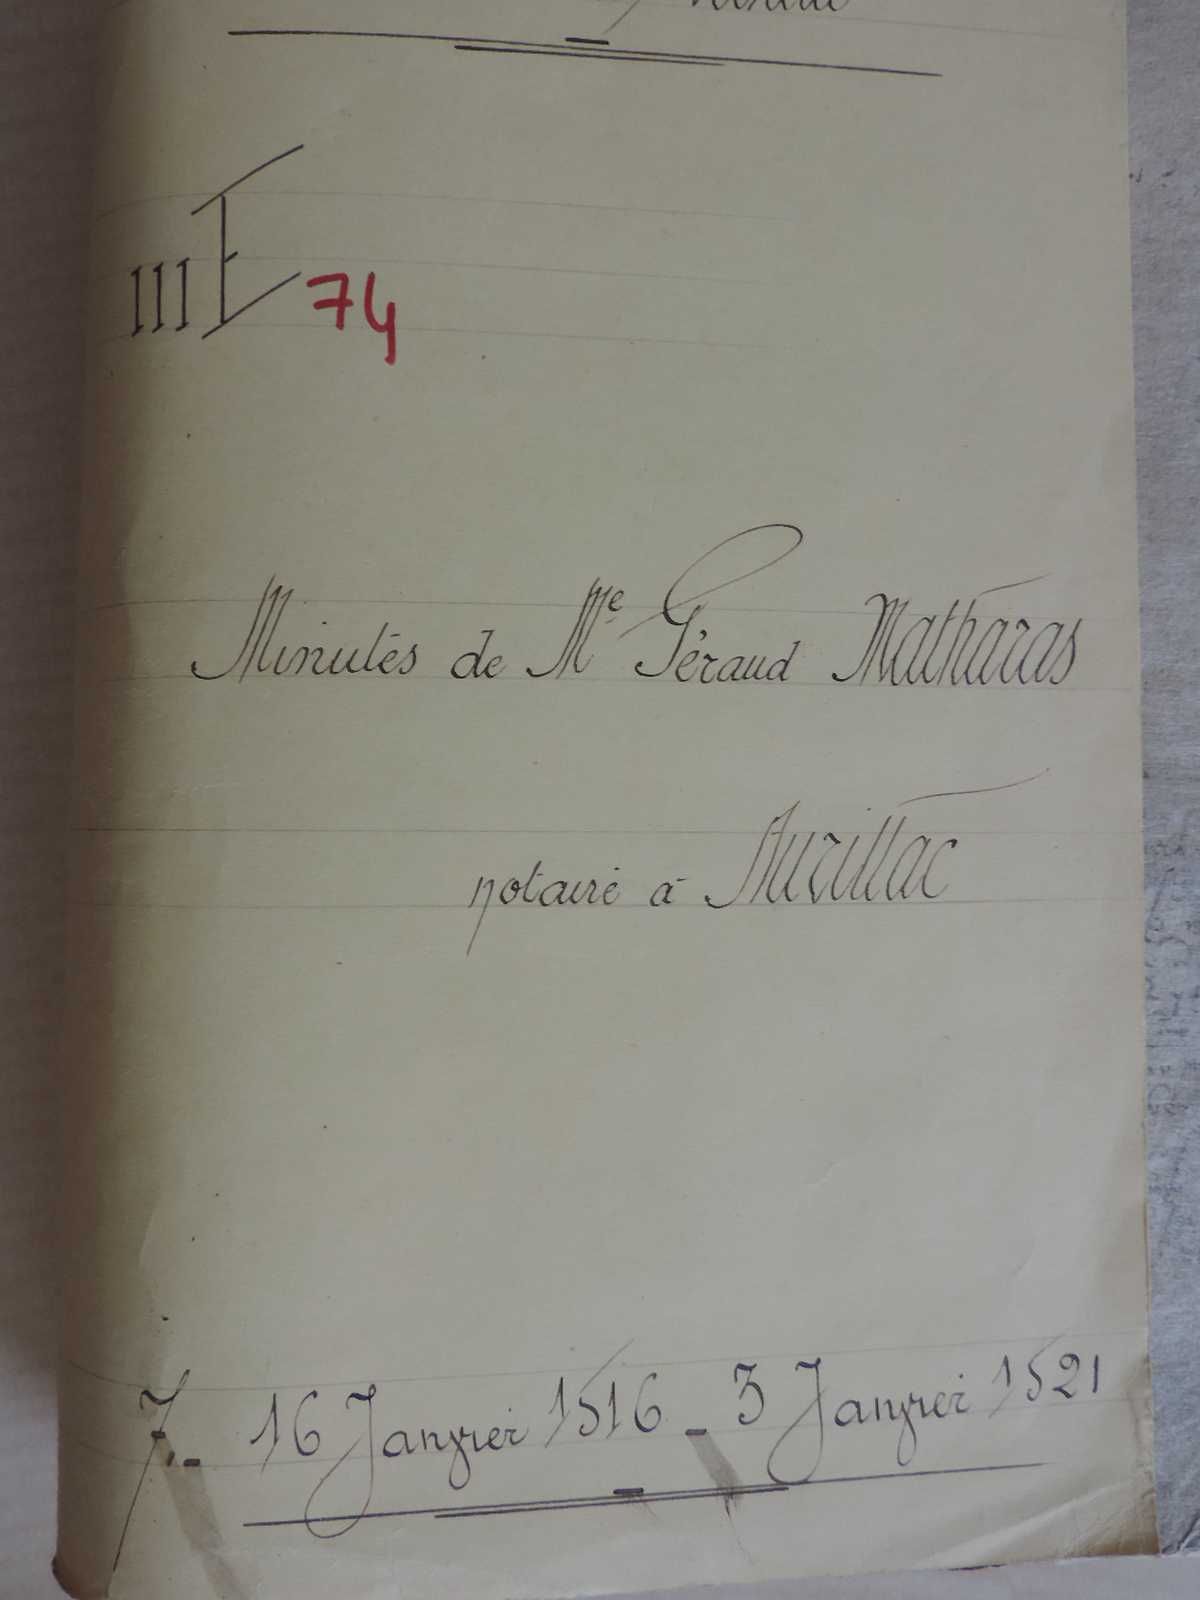 III E 74
Minutes de Mᵉ Géraud Matharas
notaire à Aurillac
7.- 16 Janvier 1516 - 3 Janvier 1521